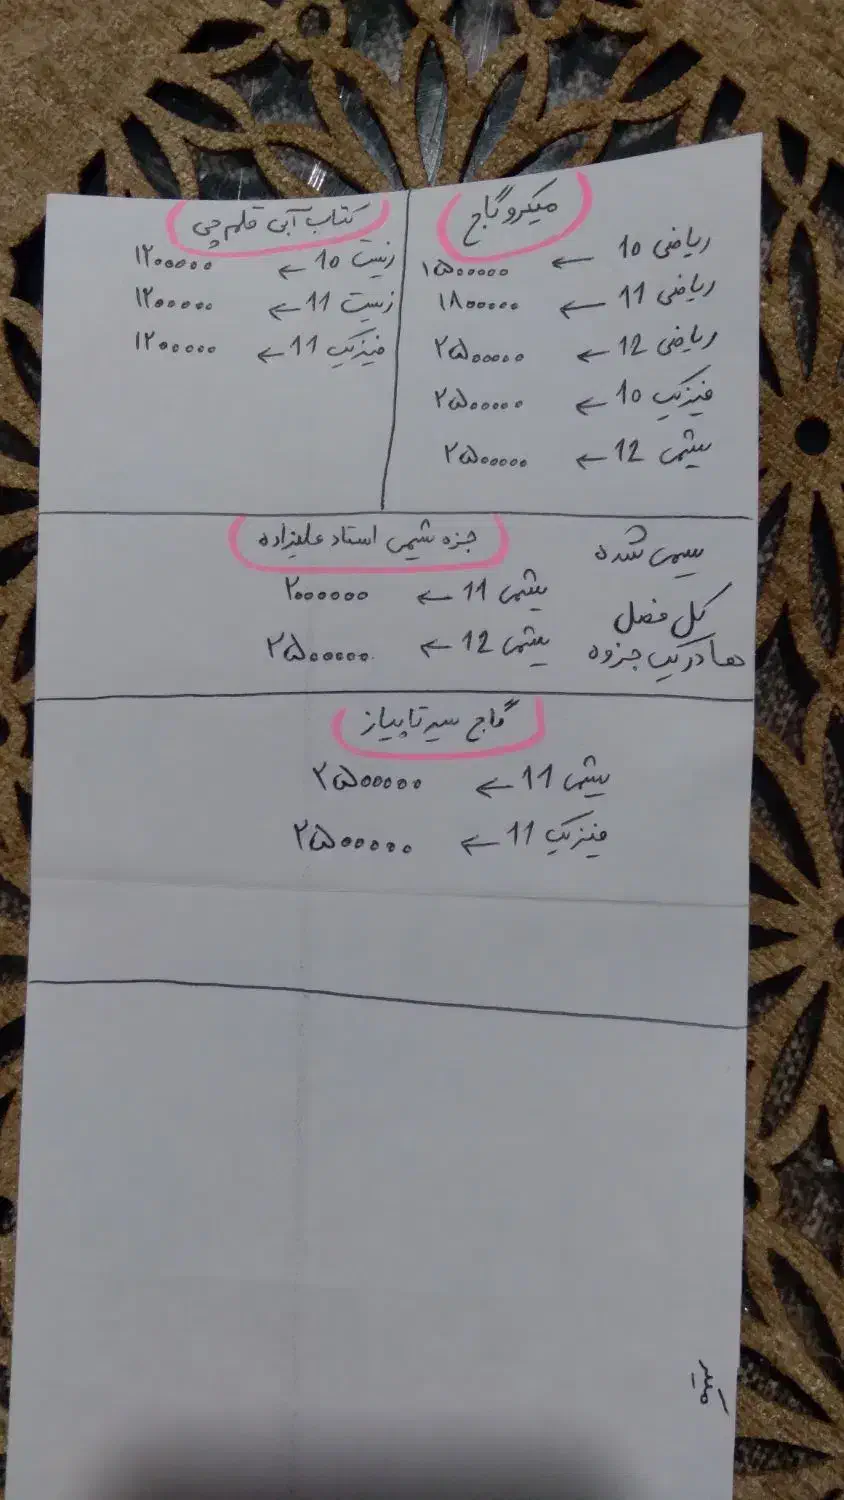 میکرو گاج
ریاضی 10 ← ۱۵۰۰۰۰۰
ریاضی 11 ← ۱۸۰۰۰۰۰
ریاضی 12 ← ۲۵۰۰۰۰۰
فیزیک 10 ← ۲۵۰۰۰۰۰
شیمی 12 ← ۲۵۰۰۰۰۰
کتاب آبی قلم چی
زیست 10 ← ۱۲۰۰۰۰۰
زیست 11 ← ۱۲۰۰۰۰۰
فیزیک 11 ← ۱۲۰۰۰۰۰
جزه شیمی استاد علیزاده
شیمی 11 ← ۲۰۰۰۰۰۰
شیمی 12 ← ۲۵۰۰۰۰۰
سیمی شده
کل فصل
ها در یک جزوه
گاج سیر تا پیاز
شیمی 11 ← ۲۵۰۰۰۰۰
فیزیک 11 ← ۲۵۰۰۰۰۰